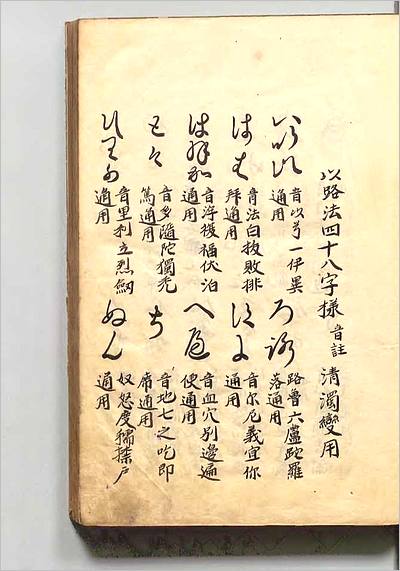 以路法四十八字様 音註 清濁變用
音以兮一伊異
通用
ろ
路魯六盧跎羅
落通用
は
音法白拔敗排
拜通用
に
音尔尼義宜你
通用
音浮後福伏泊
通用
へ
音血穴別邊遍
便通用
と
音多隨陀獨禿
篤通用
ち
音地七之吃即
席通用
り
音里利立烈
通用
ぬ
奴怒度獳
通用